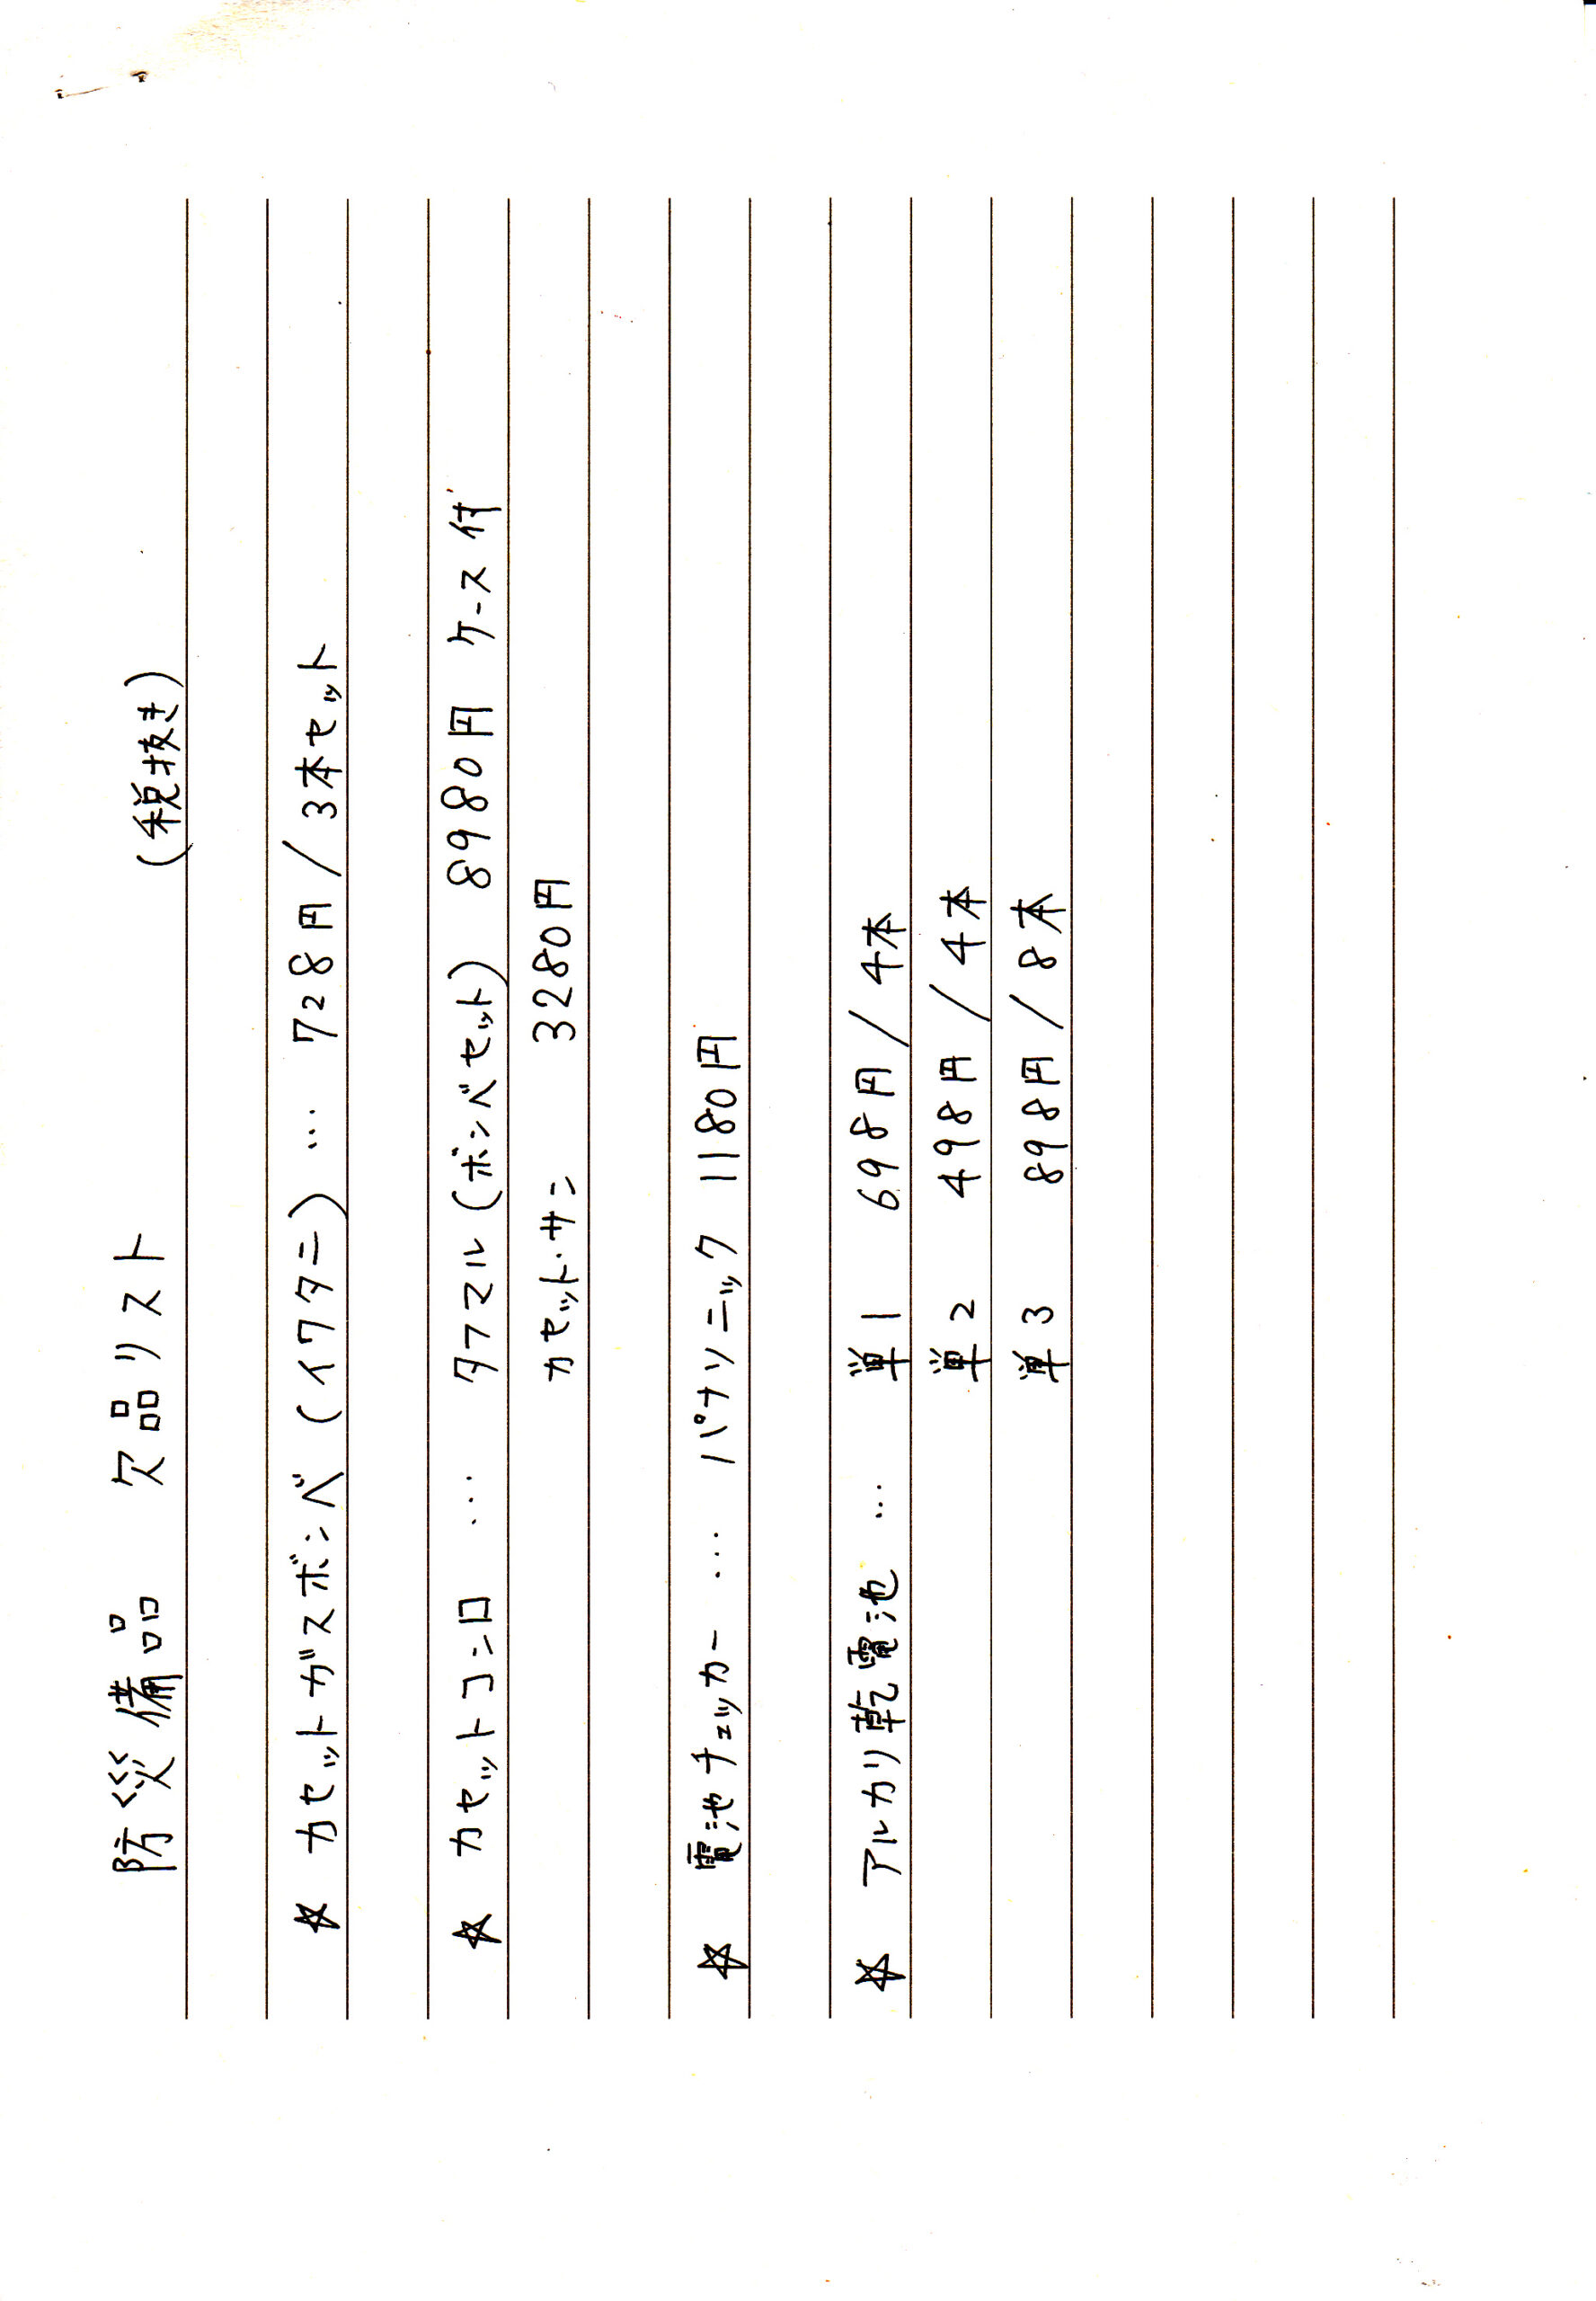 防災備品 欠品リスト (税抜き)
☆ カセットガスボンベ (イワタニ) … 728円 / 3本セット
☆ カセットコンロ … タフマル (ボンベセット) 8980円 ケース付
カセット・サン 3280円
☆ 電池チェッカー … パナソニック 1180円
☆ アルカリ乾電池 … 単1 698円 / 4本
単2 498円 / 4本
単3 898円 / 8本